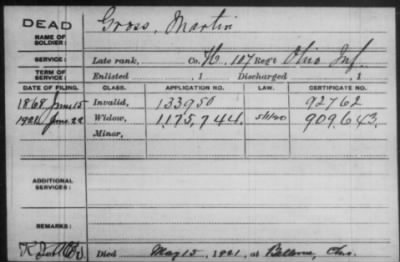 DEAD
NAME OF SOLDIER: Gross, Martin
SERVICE: Late rank, Co. H, 107 Reg't Ohio Inf.
TERM OF SERVICE: Enlisted , 1 Discharged , 1
DATE OF FILING. CLASS. APPLICATION NO. LAW. CERTIFICATE NO.
1868 June 15 Invalid, 133950 92762
1921 June 22 Widow, 1175,744. 909,643.
Minor,
ADDITIONAL SERVICES:
REMARKS:
Died May 15, 1921, at